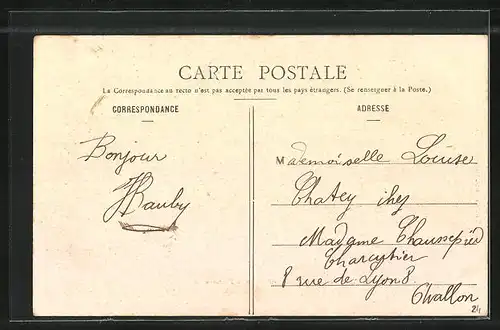 CARTE POSTALE
La Correspondance au recto n'est pas acceptée par tous les pays étrangers. (Se renseigner à la Poste.)
CORRESPONDANCE
Bonjour
ADRESSE
Mademoiselle Louise
Chatey chez
Madame Chaussepied
Charcutier
8 rue de Lyon 8.
Avallon